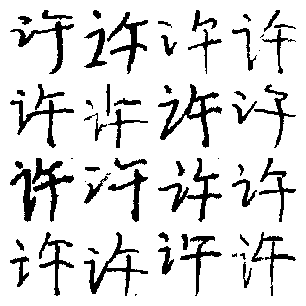 许许许许
许许许许
许许许许
许许许许